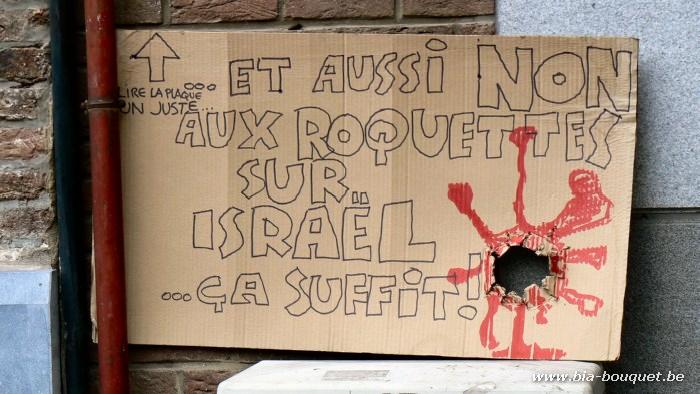 LIRE LA PLAQUE
UN JUSTE...
... ET AUSSI NON
AUX ROQUETTES
SUR
ISRAËL
...ÇA SUFFIT!
www.bia-bouquet.be